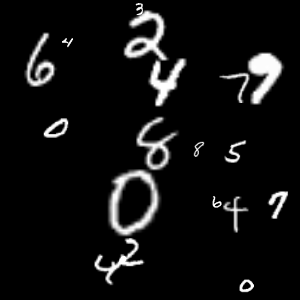 3
2
6 4
4 7 9
0
8 8 5
0 6 4 7
4 2
0